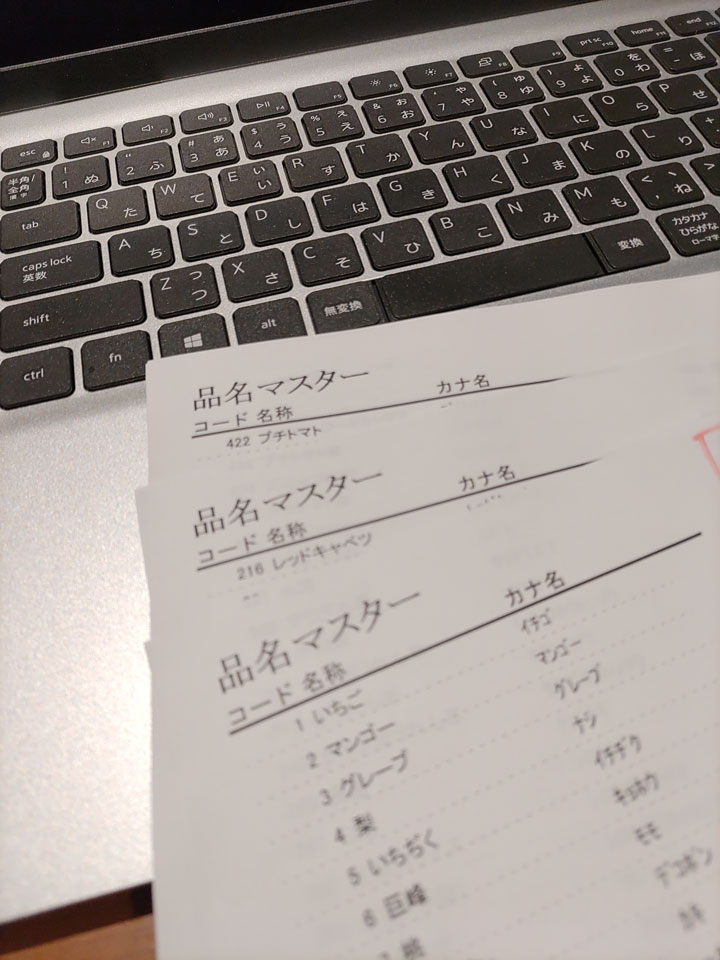 esc F1 F2 F3 F4 F5 F6 F7 F8 F9 prt sc F10 home F11 end
半角/全角 漢字 ! 1 ぬ " 2 ふ # 3 あ ぁ $ 4 う ぅ % 5 え ぇ & 6 お ぉ ' 7 や ゃ ( 8 ゆ ゅ ) 9 よ ょ 0 を わ = - ほ
tab Q た W て E い ぃ R す T か Y ん U な I に O ら P せ
caps lock 英数 A ち S と D し F は G き H く J ま K の L り +
shift Z つ っ X さ C そ V ひ B こ N み M も < 、 , ね >
ctrl fn alt 無変換 変換 カタカナ ひらがな ローマ字
品名マスター
コード 名称 カナ名
422 プチトマト
品名マスター
コード 名称 カナ名
216 レッドキャベツ
品名マスター
コード 名称 カナ名
1 いちご イチゴ
2 マンゴー マンゴー
3 グレープ グレープ
4 梨 ナシ
5 いちぢく イチヂク
6 巨峰 キョホウ
モモ
デコポン
カキ